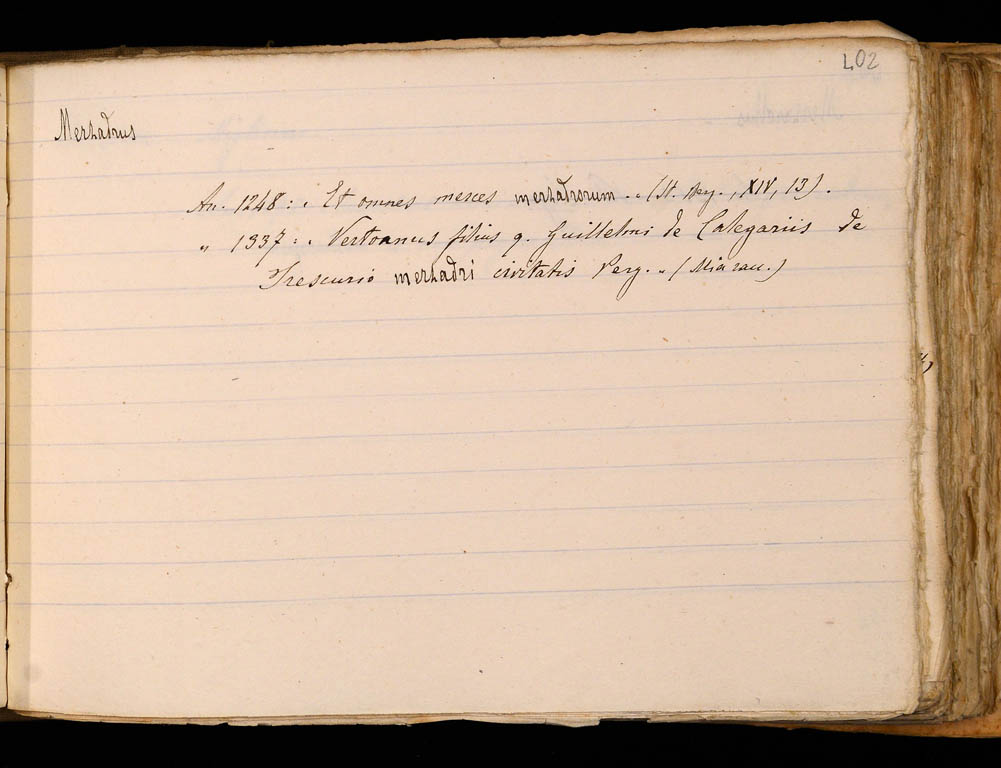 402
Merzadrus
An. 1248: „ Et omnes merces merzadrorum „ (St. Perg., XIV, 13).
„ 1337: „ Vertoanus filius q. Guillelmi de Calegariis de
Trescurio merzadri civitatis Perg. „ (Mia rac.)